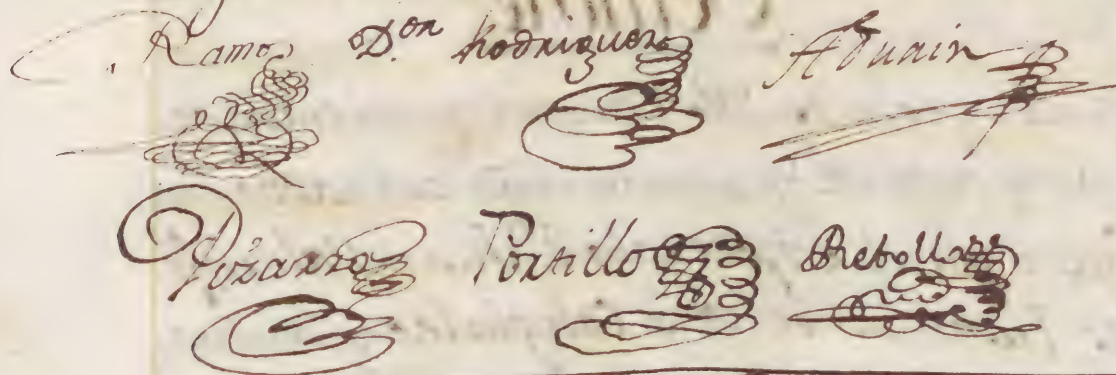 Ramos D.on Rodriguez Aduain
Pizarro Portillo Rebollo